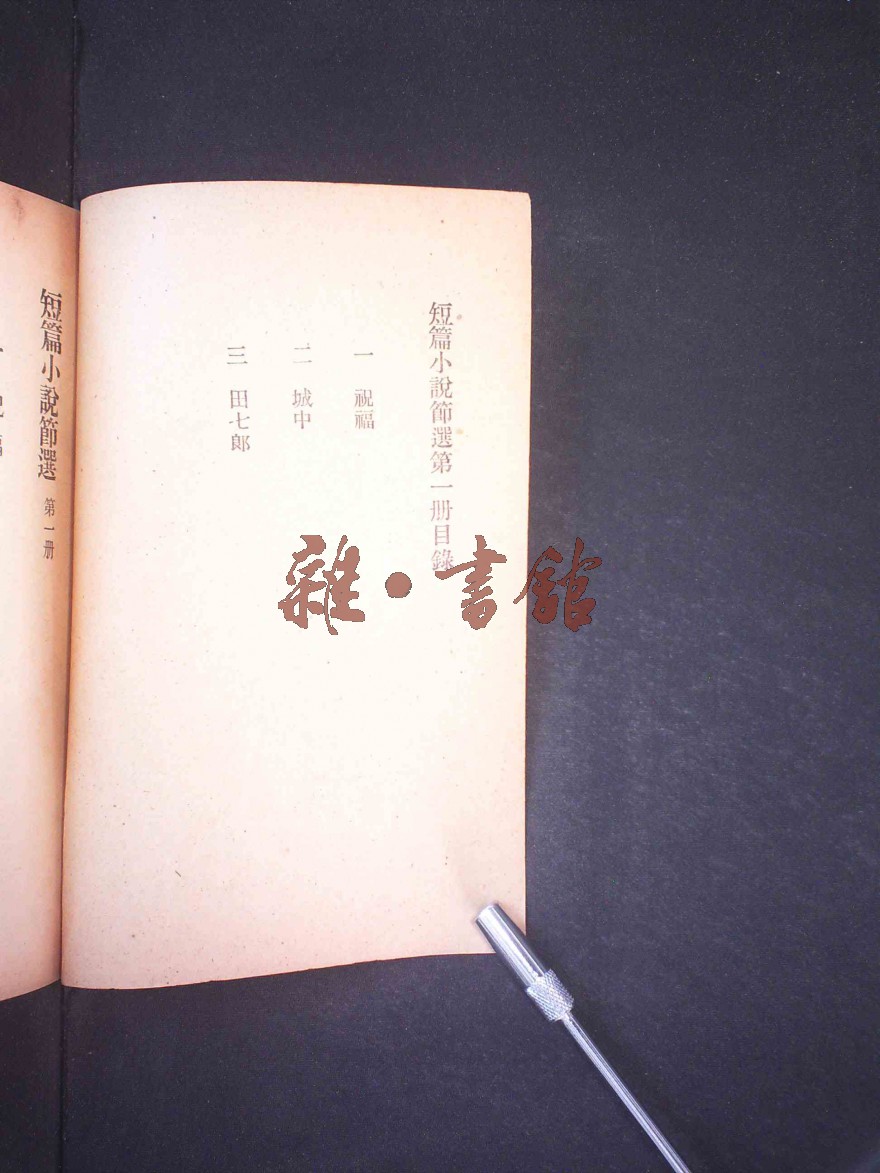 短篇小說節選第一册目錄
一 祝福
二 城中
三 田七郎
短篇小說節選 第一册
雜·書館